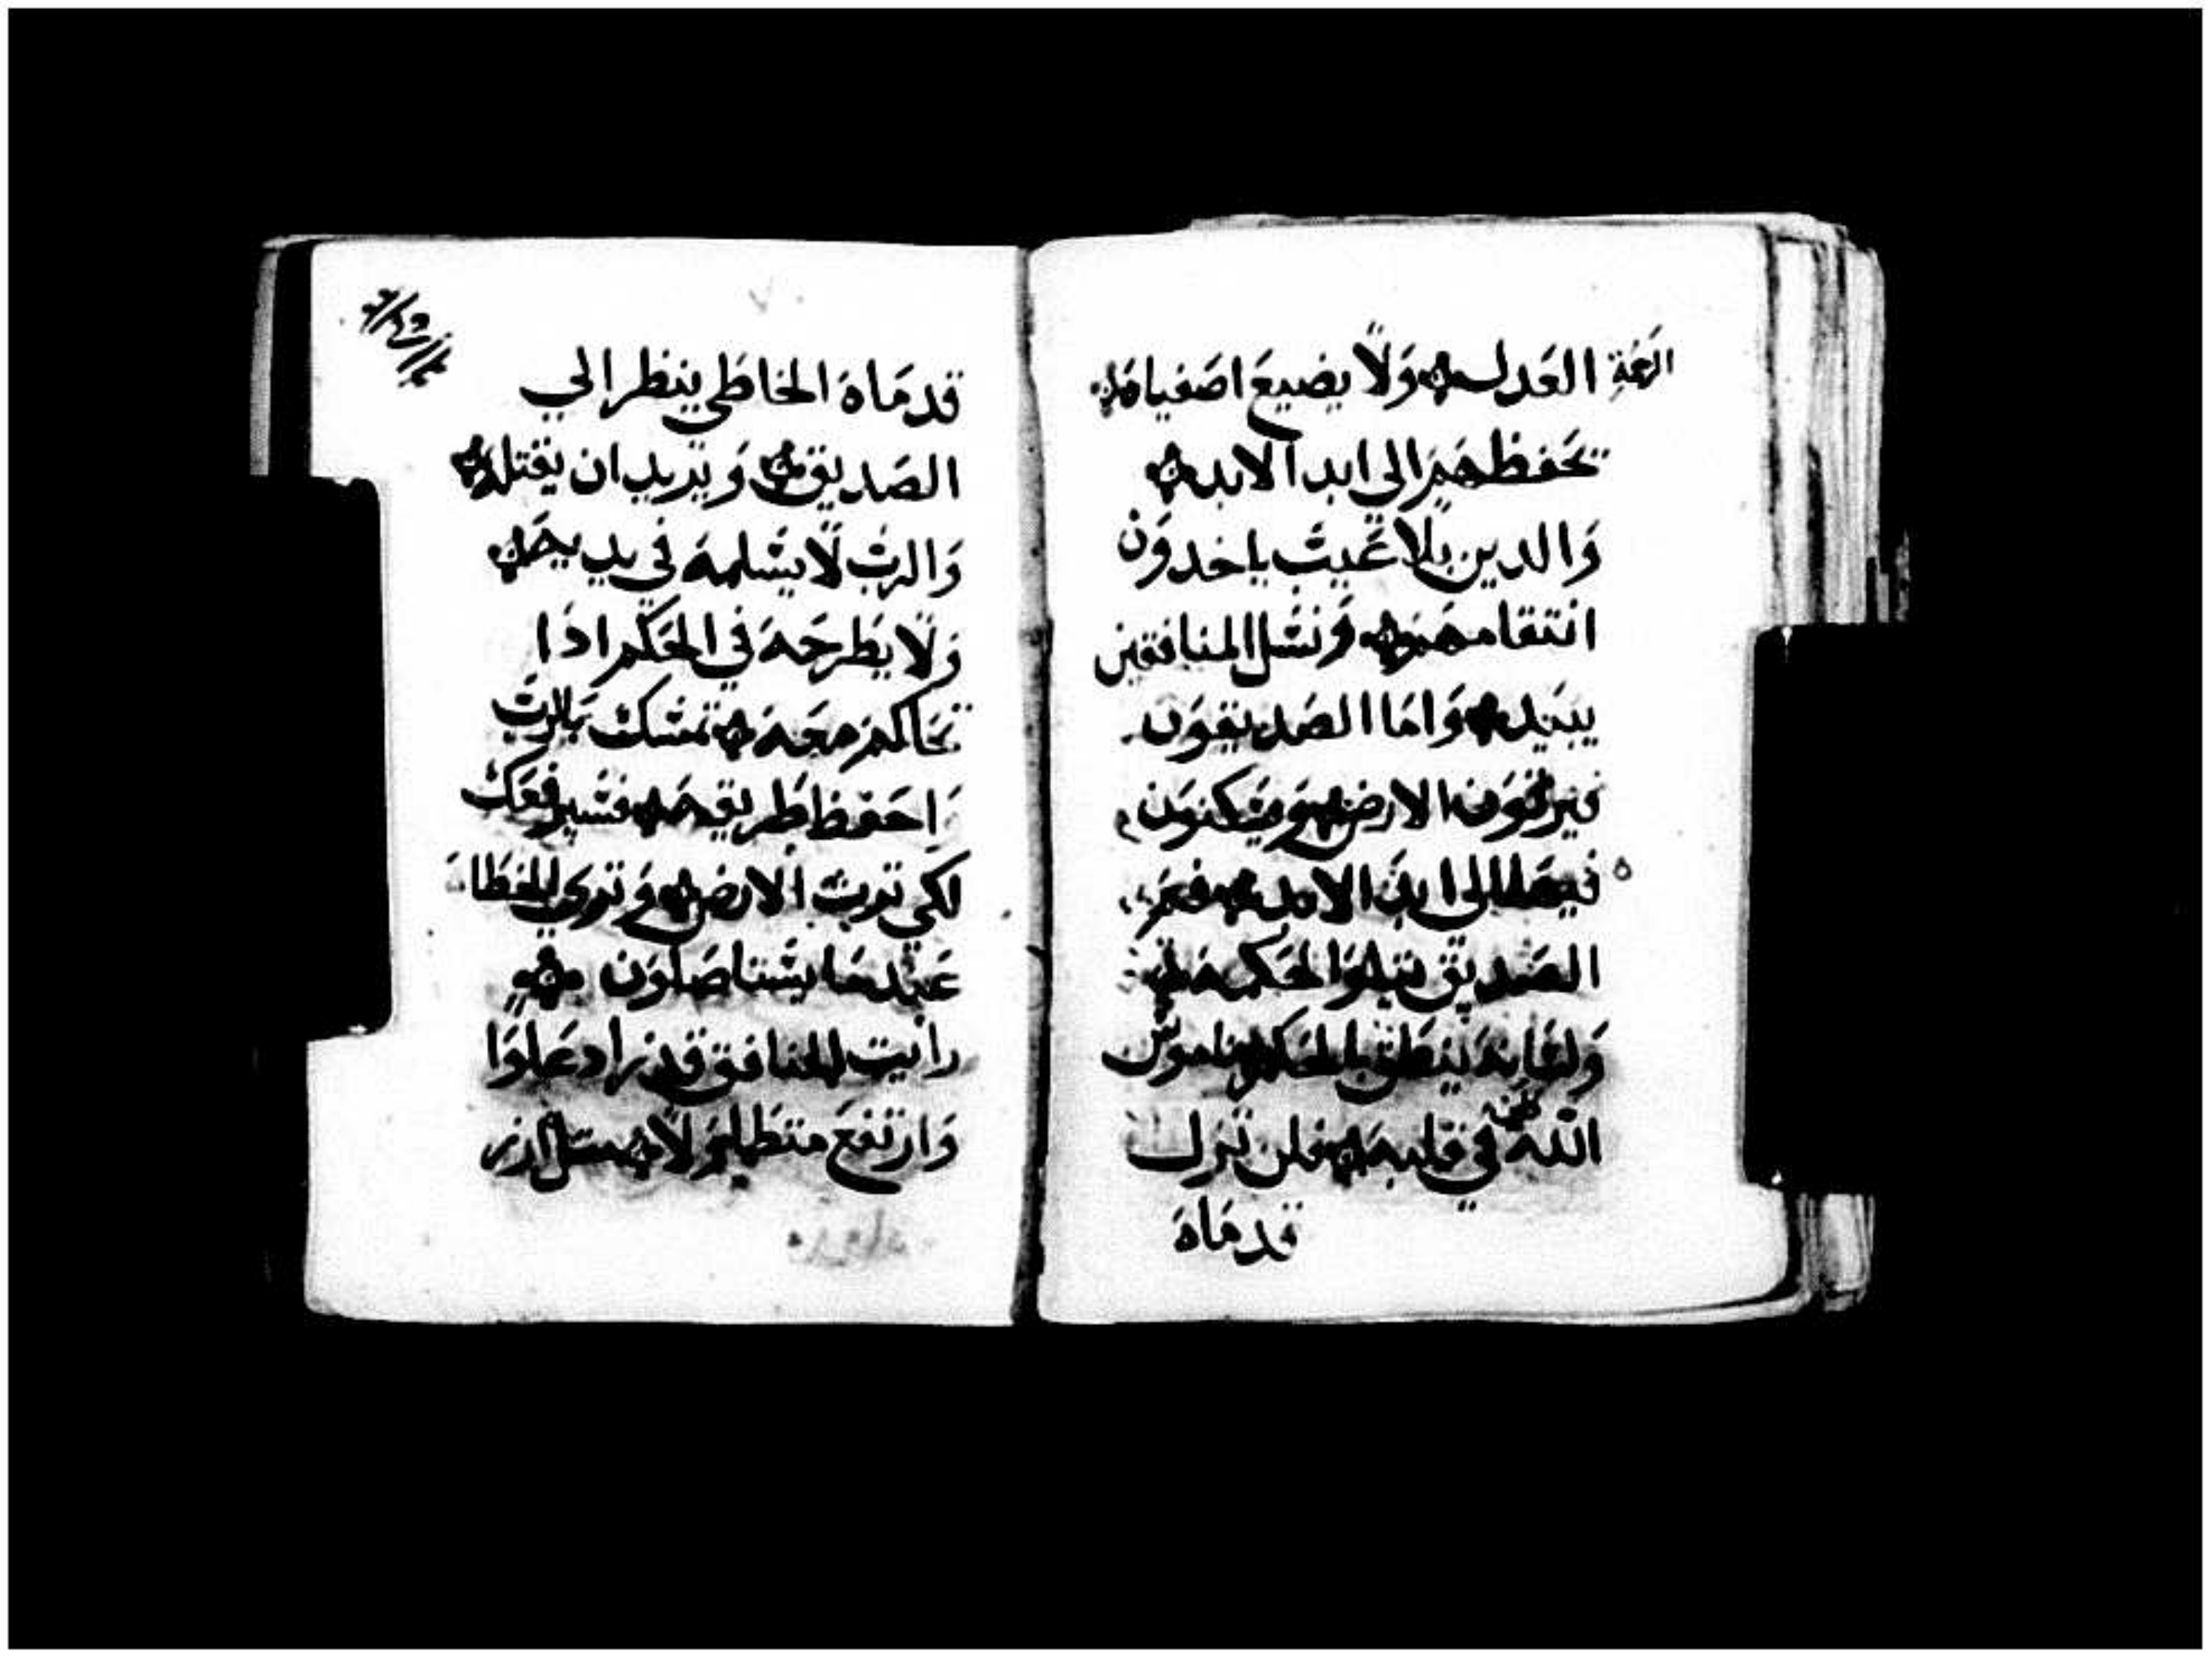 العدل ولا يضيع اصفياه
تحفظهم الى ابد الابد
والدين بلا عيب ياخدون
انتقامهم ونسل المنافقين
يبيد واما الصديقون
فيرثون الارض ويسكنون
فيها الى ابد الابد فم
الصديق يتلوا الحكمه
ولسانه ينطق بالحكم ناموس
الله في قلبه فلن تزل
قدماه
قدماه الخاطي ينظر الي
الصديق ويريد ان يقتله
والرب لا يسلمه في يديه
ولا يطرحه في الحكم ادا
تحاكم معه تمسك بالرب
واحفظ طريقه فسيرفعك
لكي ترث الارض وتري الخطاه
عندما يستاصلون
رايت المنافق قد زاد علوا
وارتفع متطاولا مثل ارز